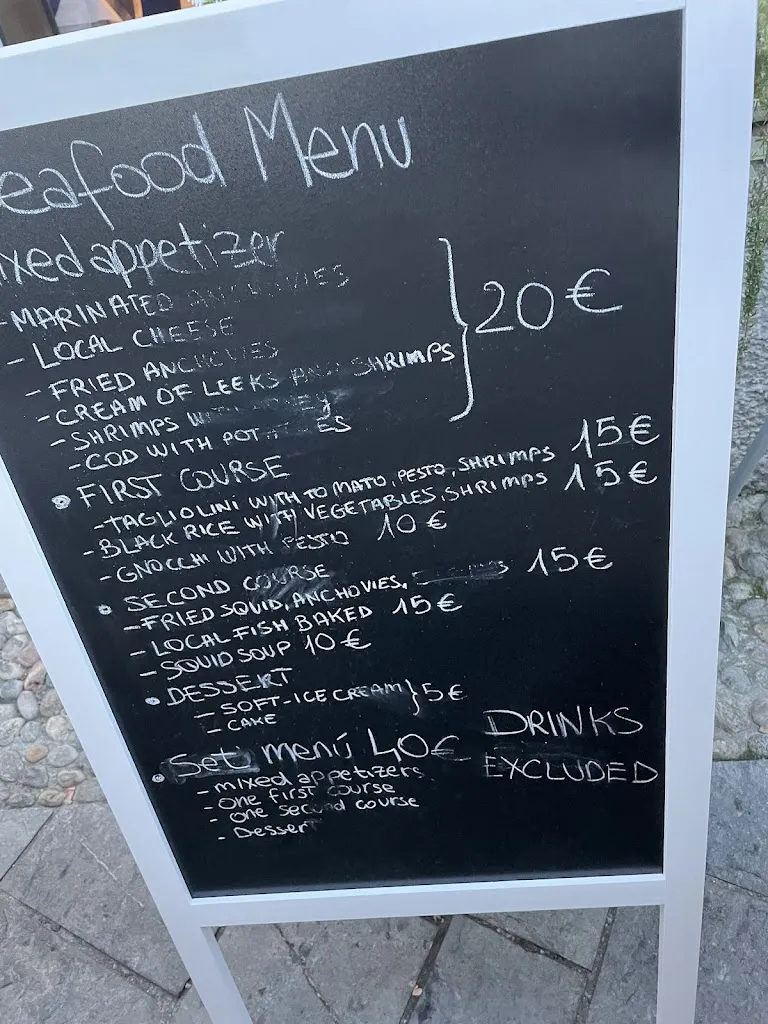 eafood Menu
ixed appetizer
- MARINATED ANCHOVIES
- LOCAL CHEESE
- FRIED ANCHOVIES
- CREAM OF LEEKS AND SHRIMPS
- SHRIMPS WITH HONEY
- COD WITH POTATOES
} 20 €
• FIRST COURSE
- TAGLIOLINI WITH TOMATO, PESTO, SHRIMPS 15 €
- BLACK RICE WITH VEGETABLES, SHRIMPS 15 €
- GNOCCHI WITH PESTO 10 €
• SECOND COURSE
- FRIED SQUID, ANCHOVIES, 15 €
- LOCAL FISH BAKED 15 €
- SQUID SOUP 10 €
• DESSERT
- SOFT-ICE CREAM } 5 €
- CAKE
• Set menú 40 €
- mixed appetizers
- one first course
- one second course
- Dessert
DRINKS
EXCLUDED